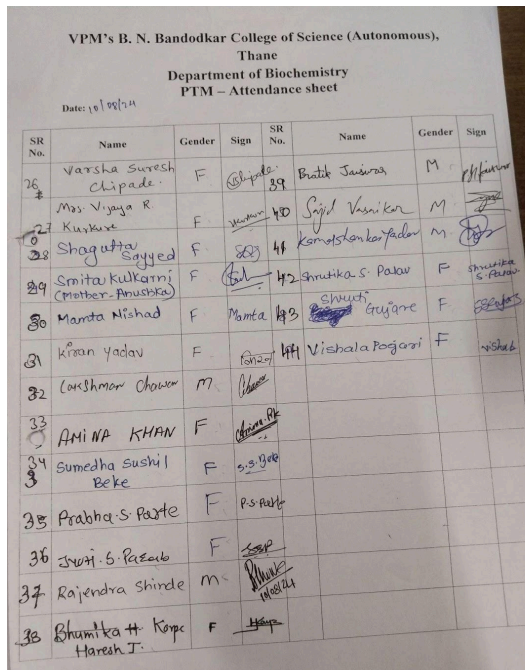 VPM's B. N. Bandodkar College of Science (Autonomous),
Thane
Department of Biochemistry
PTM – Attendance sheet
Date: 10/08/24
SR No. Name Gender Sign SR No. Name Gender Sign
26 Varsha Suresh Chipade. F VChipade. 39 Pratik Jaiswar M
27 Mrs. Vijaya R. Kurkure F 40 Sajid Vasnikar M
28 Shagufta Sayyed F 41 Kamalshankar Yadav M
29 Smita Kulkarni (Mother-Anushka) F 42 Shrutika S. Palav F Shrutika S. Palav
30 Mamta Nishad F Mamta 43 Shruti Gujare F
31 Kiran Yadav F 44 Vishala Pojari F Vishala
32 Lakshman Chavan M
33 AMINA KHAN F Amina.Pk
34 Sumedha Sushil Beke F S.S.Beke
35 Prabha.S.Parte F P.S.Parte
36 Jyoti.S.Parab F
37 Rajendra Shinde M 10/08/24
38 Bhumika H Korpe F
Haresh J.